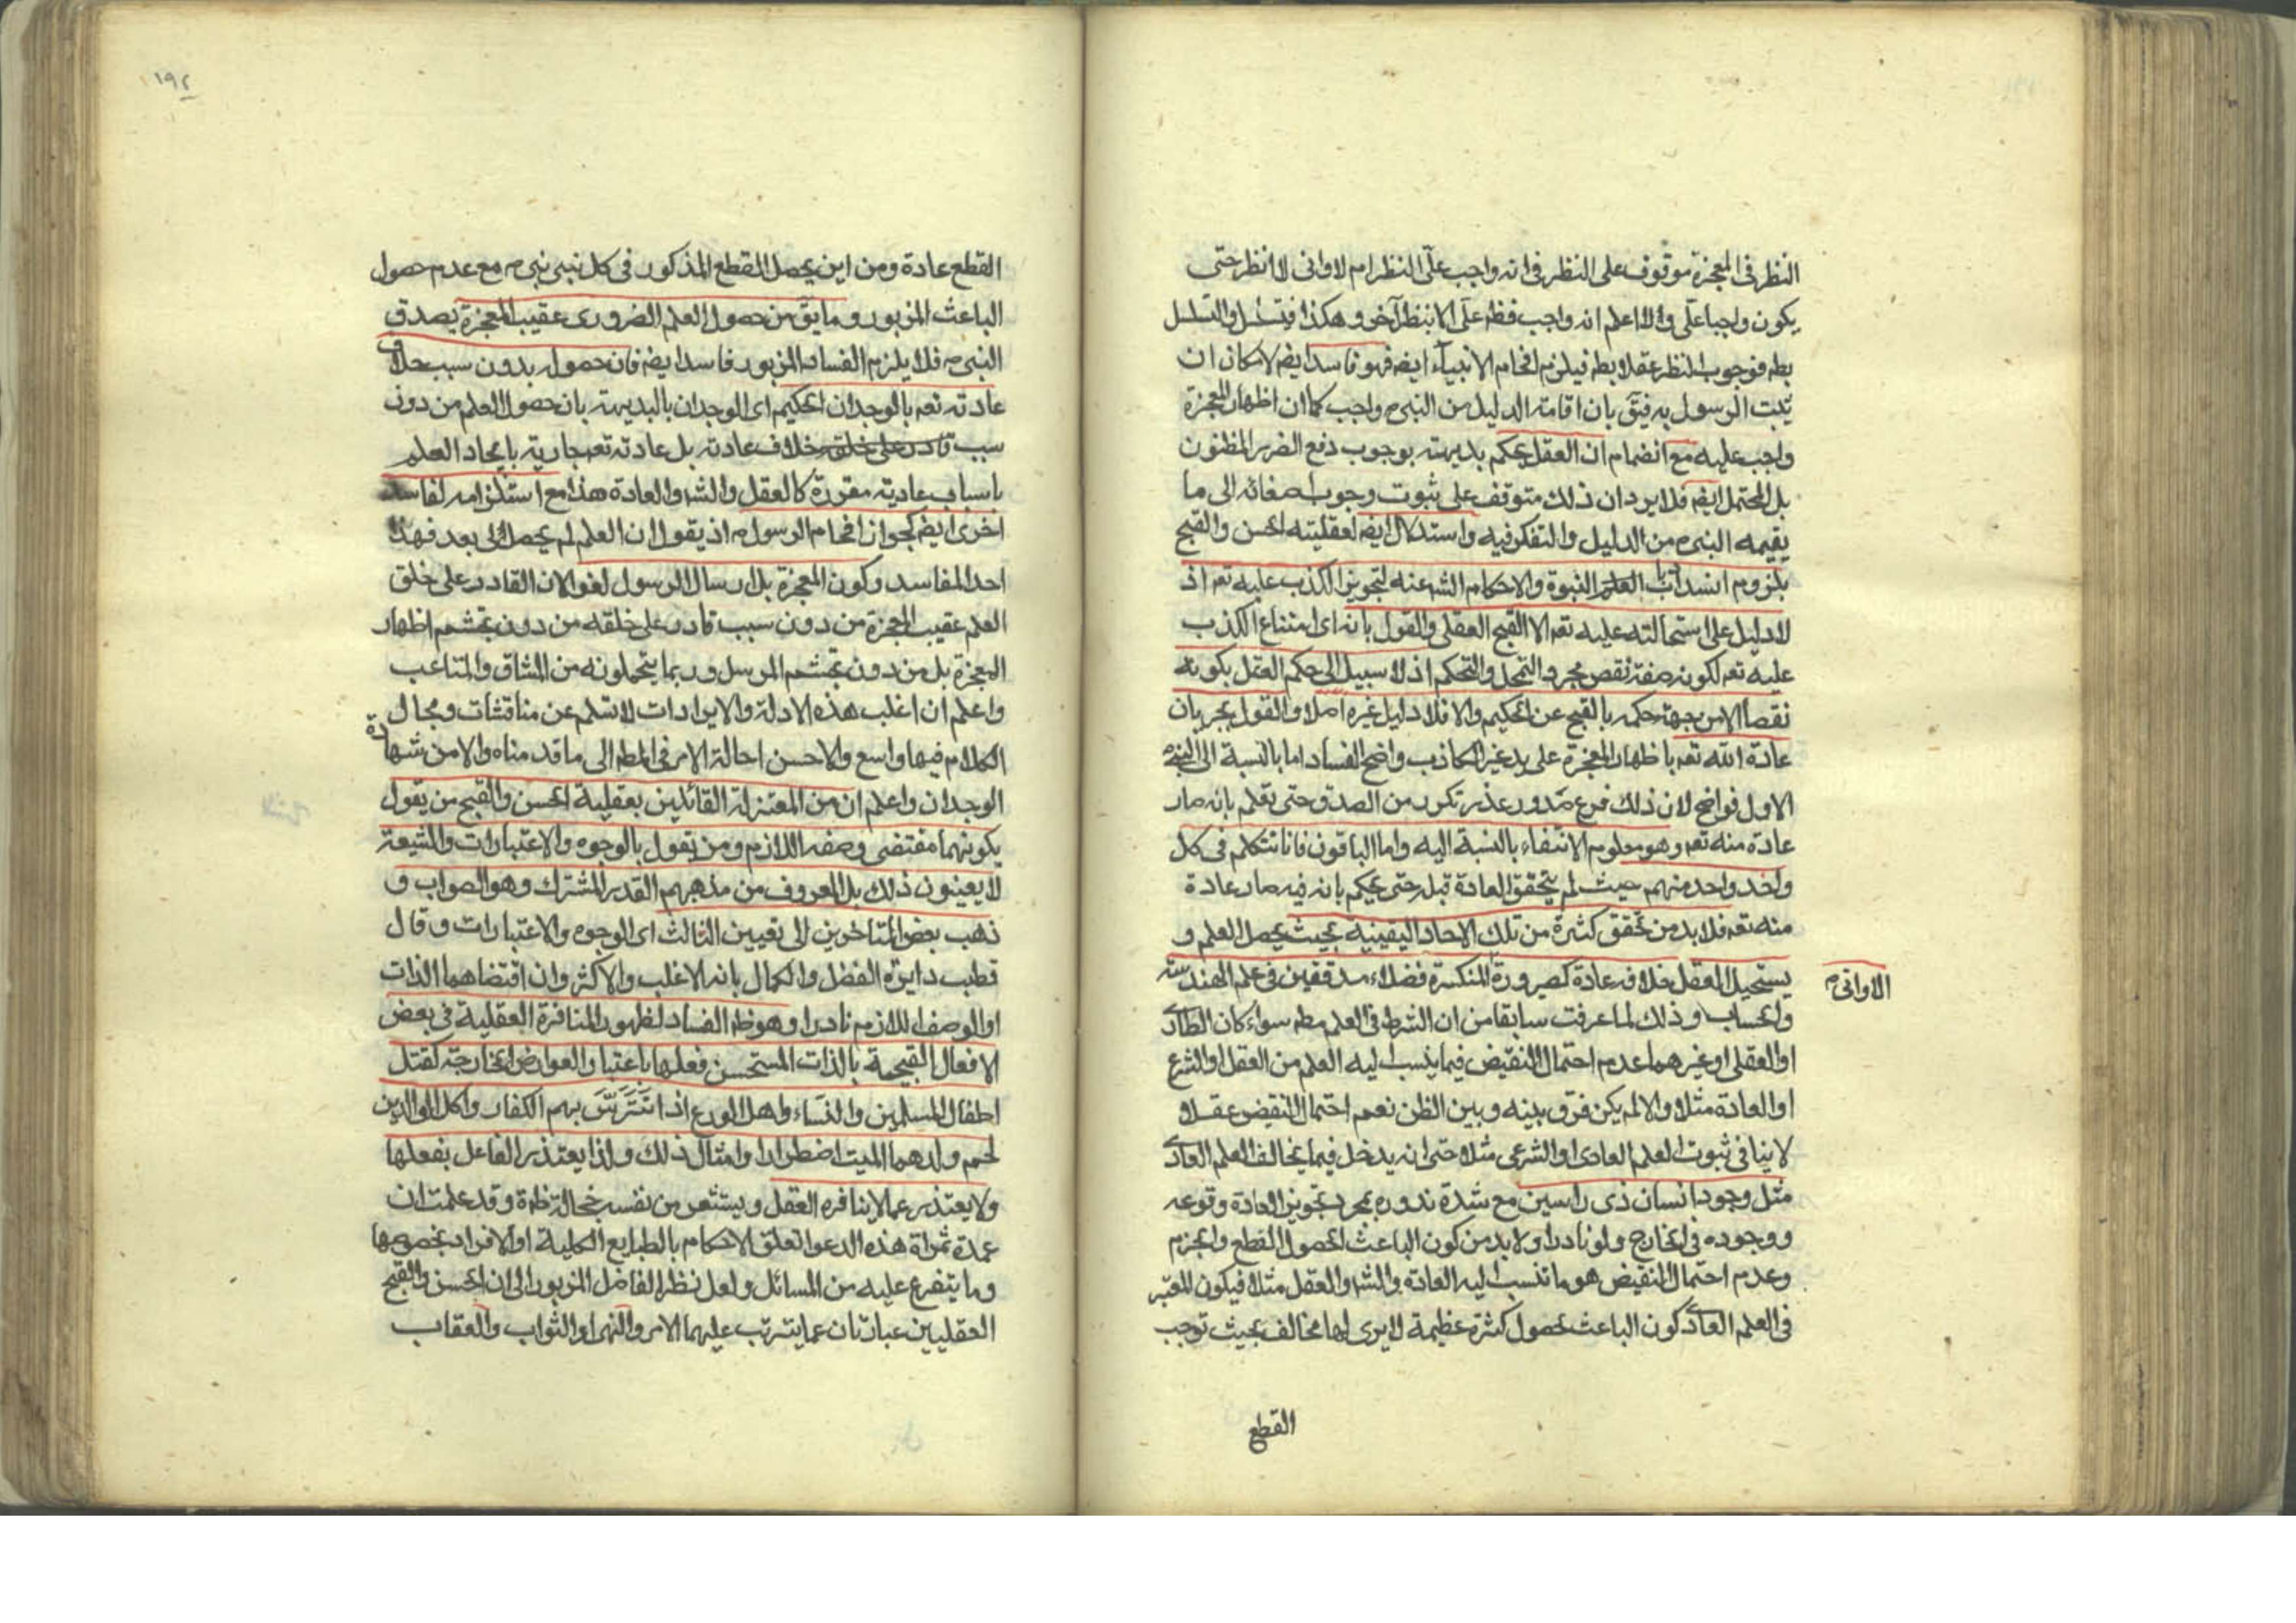 النظر فى المعجزة موقوف على النظر فى انه واجب علىّ النظر ام لا وانى لا انظر حتى
يكون واجبا علّى والا اعلم انه واجب فظم علّى الا بنظر آخر وهكذا فيتسلسل والتسلسل
بطم فوجوب النظر عقلا بطم فيلزم افحام الانبياء ايضم فهو فاسد ايضم لامكان ان
يثبت الرسول به فيقّ بان اقامة الدليل من النبىم واجب كما ان اظهار المعجزة
واجب عليه مع انضمام ان العقل يحكم بديهته بوجوب دفع الضرر المظنون
بل المحتمل ايضم فلا يرد ان ذلك متوقف على ثبوت وجوب اصغائه الى ما
يقيمه النبىم من الدليل والتفكر فيه واستدلال ايضم لعقليته الحسن والقبح
بلزوم انسداد باب العلم النبوة والاحكام الشرعنه لتجويز الكذب عليه تعم اذ
لا دليل على استحالته عليه تعم الا القبح العقلى والقول بانه اى امتناع الكذب
عليه تعم لكونه صفة نقص مجرد التمحل والتحكم اذ لا سبيل الى حكم العقل بكونه
نقصا الا من جهة حكمه بالقبح عن الحكيم والا فلا دليل غيره اصلا والقول بجريان
عادة الله تعم باظهار المعجزة على يد غير الكاذب واضح الفساد اما بالنسبة الى النبىم
الاول فواضح لان ذلك فرع تكرر من الصدق حتى تعلم بانه صار
عادة منه تعم وهو معلوم الانتفاء بالنسبة اليه واما الباقون فانا نتكلم فى كل
واحد واحد منهم حيث لم يتحقق العادة قبله حتى يحكم بانه فيه صار عادة
منه تعم فلا بد من تحقق كثرة من تلك الاحاد اليقينية بحيث يحصل العلم و
يستحيل العقل خلافه عادة كصيرورة المنكسرة فضلاء مدققين فى علم الهندسة
الاوانىم
والحساب وذلك لما عرفت سابقا من ان الشرط فى العلم مطم سواء كان العادى
او العقلى او غيرهما عدم احتمال النقيض فيما ينسب اليه العلم من العقل او الشرع
او العادة مثلا والا لم يكن فرق بينه وبين الظن نعم احتمال النقيض عقلا
لا ينافى ثبوت العلم العادى او الشرعى مثلا حتى انه يدخل فيما يخالف العلم العادى
مثل وجود انسان ذى راسين مع شدة ندوره بمجرد تجويز العادة وقوعه
ووجوده فى الخارج ولو نادرا ولا بد من كون الباعث لحصول القطع والجزم
وعدم احتمال النقيض هو ما تنسب اليه العادة والشرع والعقل مثلا فيكون المعتبر
فى العلم العادى كون الباعث حصول كثرة عظيمة لا يرى لها مخالف بحيث توجب
القطع
١٩٢
القطع عادة ومن اين يحصل القطع المذكور فى كل نبى نبىم مع عدم حصول
الباعث المزبور وما يقّ من حصول العلم الضرورى عقيب المعجزة بصدق
النبىم فلا يلزم الفساد المزبور فاسد ايضم فان حصوله بدون سبب خلاف
عادته تعم بالوجدان الحكيم اى الوجدان بالبديهة بان حصول العلم من دون
سبب قادر على خلقه خلاف عادته بل عادته تعم جارية بايجاد العلم
باسباب عادية مقررة كالعقل والشرع والعادة هذا مع استلزامه لفاسد
اخرى ايضم كجواز افحام الرسولم اذ يقول ان العلم لم يحصل لى بعد فهذا
احد المفاسد وكون المعجزة بل ارسال الرسول لغوا لان القادر على خلق
العلم عقيب المعجزة من دون سبب قادر على خلقه من دون تجشم اظهار
المعجزة بل من دون تجشم المرسل وربما يتحملونه من المشاق والمتاعب
واعلم ان اغلب هذه الادلة والايرادات لا تسلم عن مناقشات ومجال
الكلام فيها واسع والاحسن احالة الامر فى المطم الى ما قدمناه والا من شهادة
الوجدان واعلم ان من المعتزلة القائلين بعقلية الحسن والقبح من يقول
بكونهما مقتضى وصفه اللازم ومن يقول بالوجوه والاعتبارات والشيعة
لا يعينون ذلك بل المعروف من مذهبهم القدر المشترك وهو الصواب و
ذهب بعض المتاخرين الى تعيين الثالث اى الوجوه والاعتبارات وقال
قطب دايرة الفضل والكمال بانه الاغلب والاكثر وان اقتضاهما الذات
او الوصف اللازم نادرا وهو ظم الفساد لظهور المنافرة العقلية فى بعض
الافعال القبيحة بالذات المستحسن فعلها باعتبار العوارض الخارجة كقتل
اطفال المسلمين والنساء واهل الورع اذا تترّس بهم الكفار واكل الوالدين
لحم ولدهما الميت اضطرارا وامثال ذلك ولذا يعتذر الفاعل بفعلها
ولا يعتذر عما لا ينافره العقل ويستشعر من نفسه خجالة ظمة وقد علمت ان
عمدة ثمراة هذه الدعوا تعلق الاحكام بالطبايع الكلية او الافراد بخصوصها
وما يتفرع عليه من المسائل ولعل نظر الفاضل المزبور الى ان الحسن والقبح
العقليين عبارتان عما يترتب عليهما الامر والنهى او الثواب والعقاب